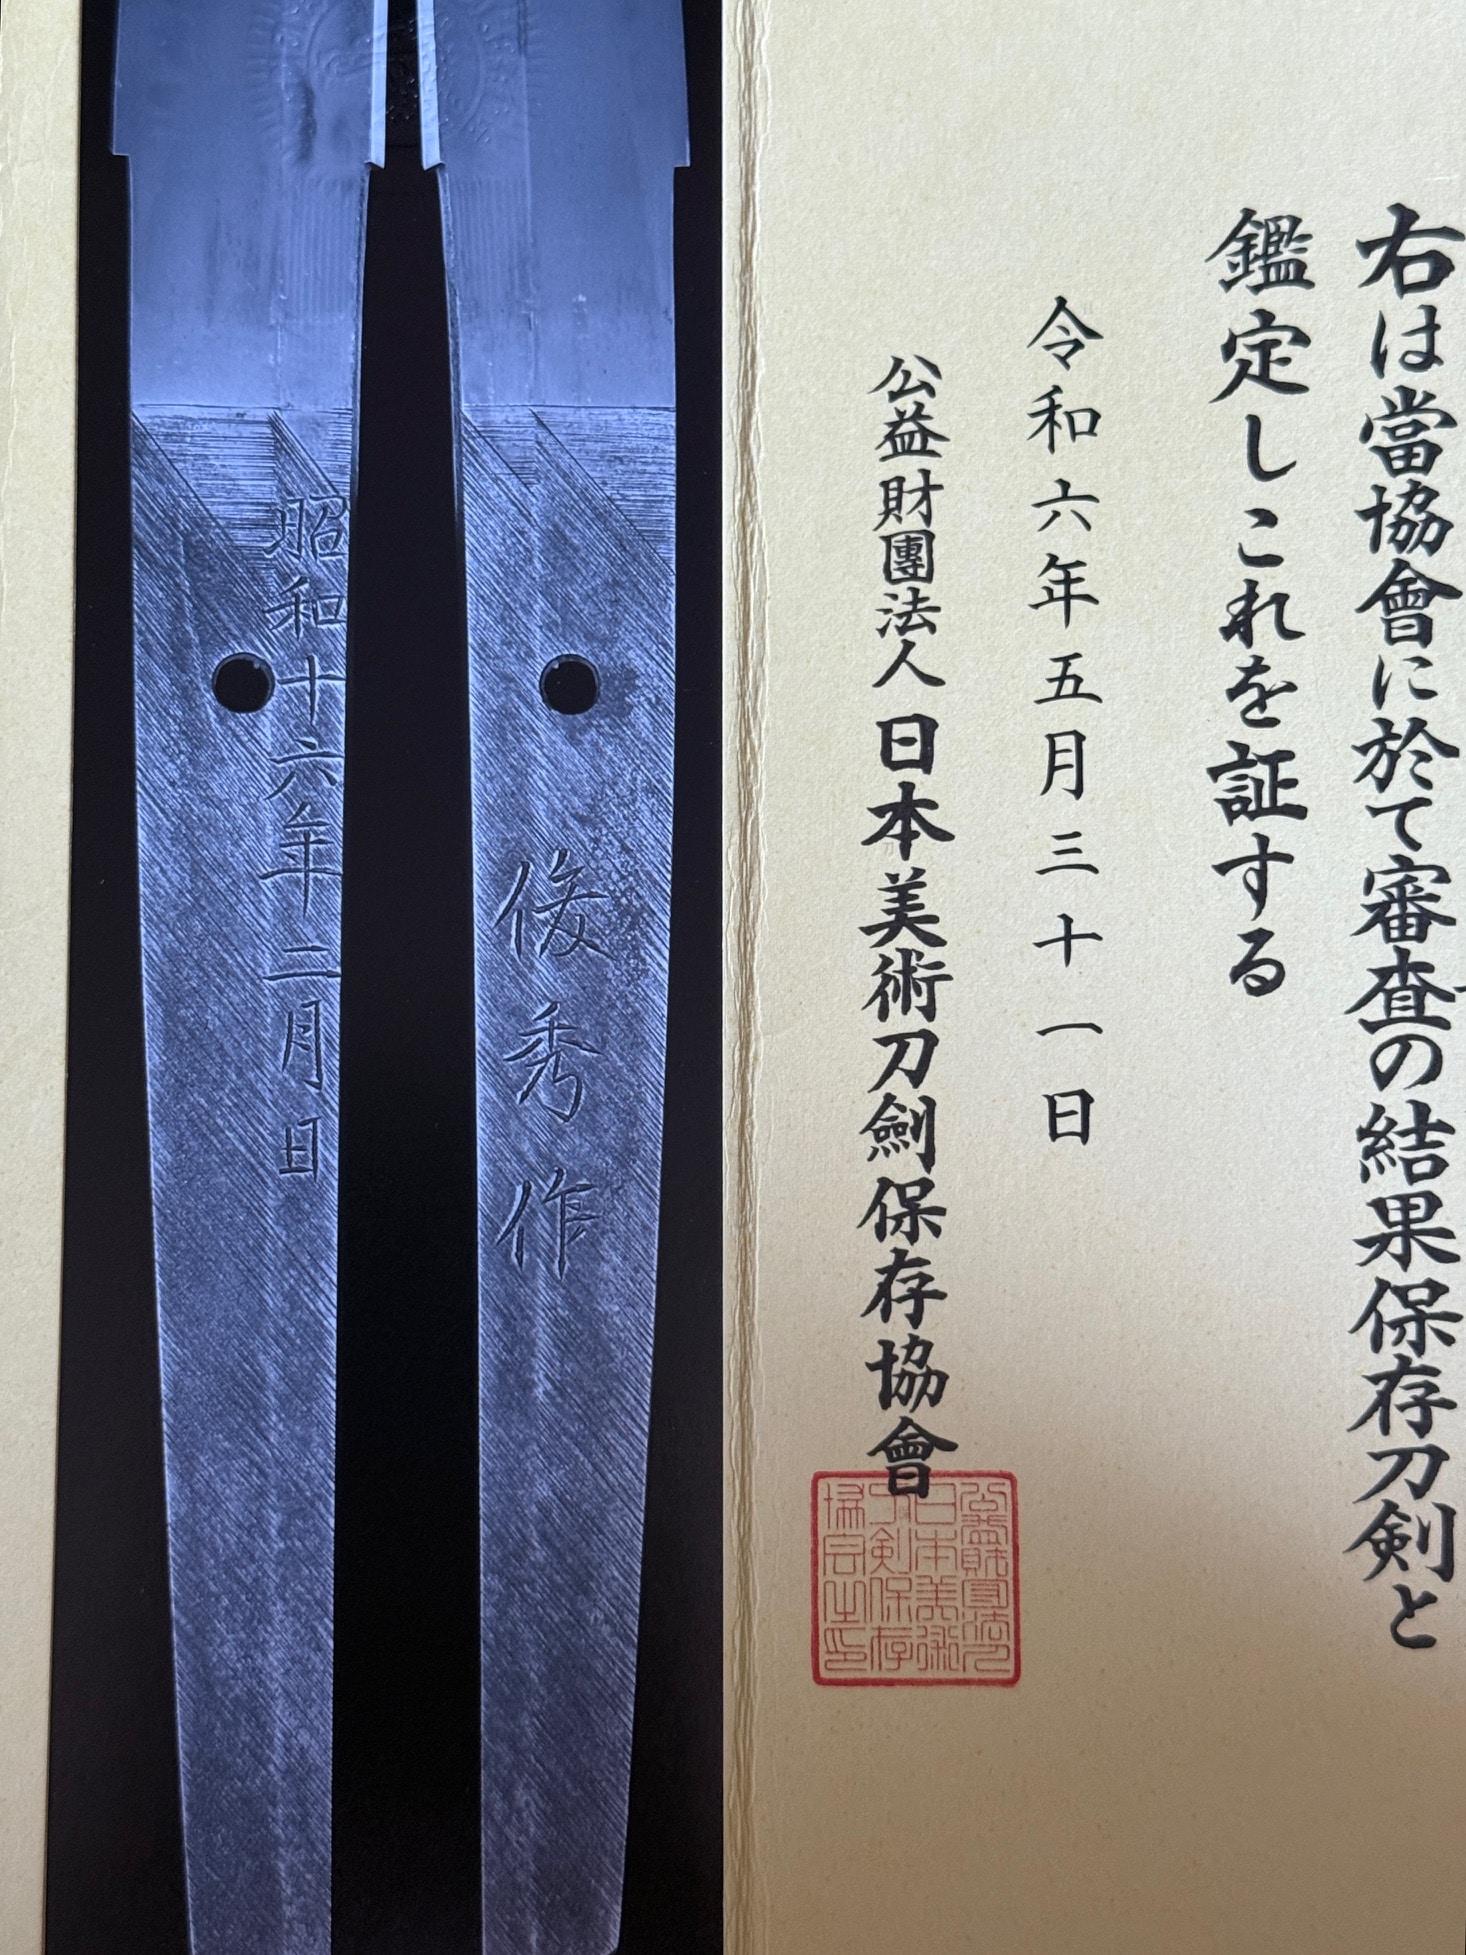 右は當協會に於て審査の結果保存刀剣と
鑑定しこれを証する
令和六年五月三十一日
公益財團法人日本美術刀劍保存協會
公益財団法人
日本美術
刀剣保存
協会之印
俊秀作
昭和十六年二月日